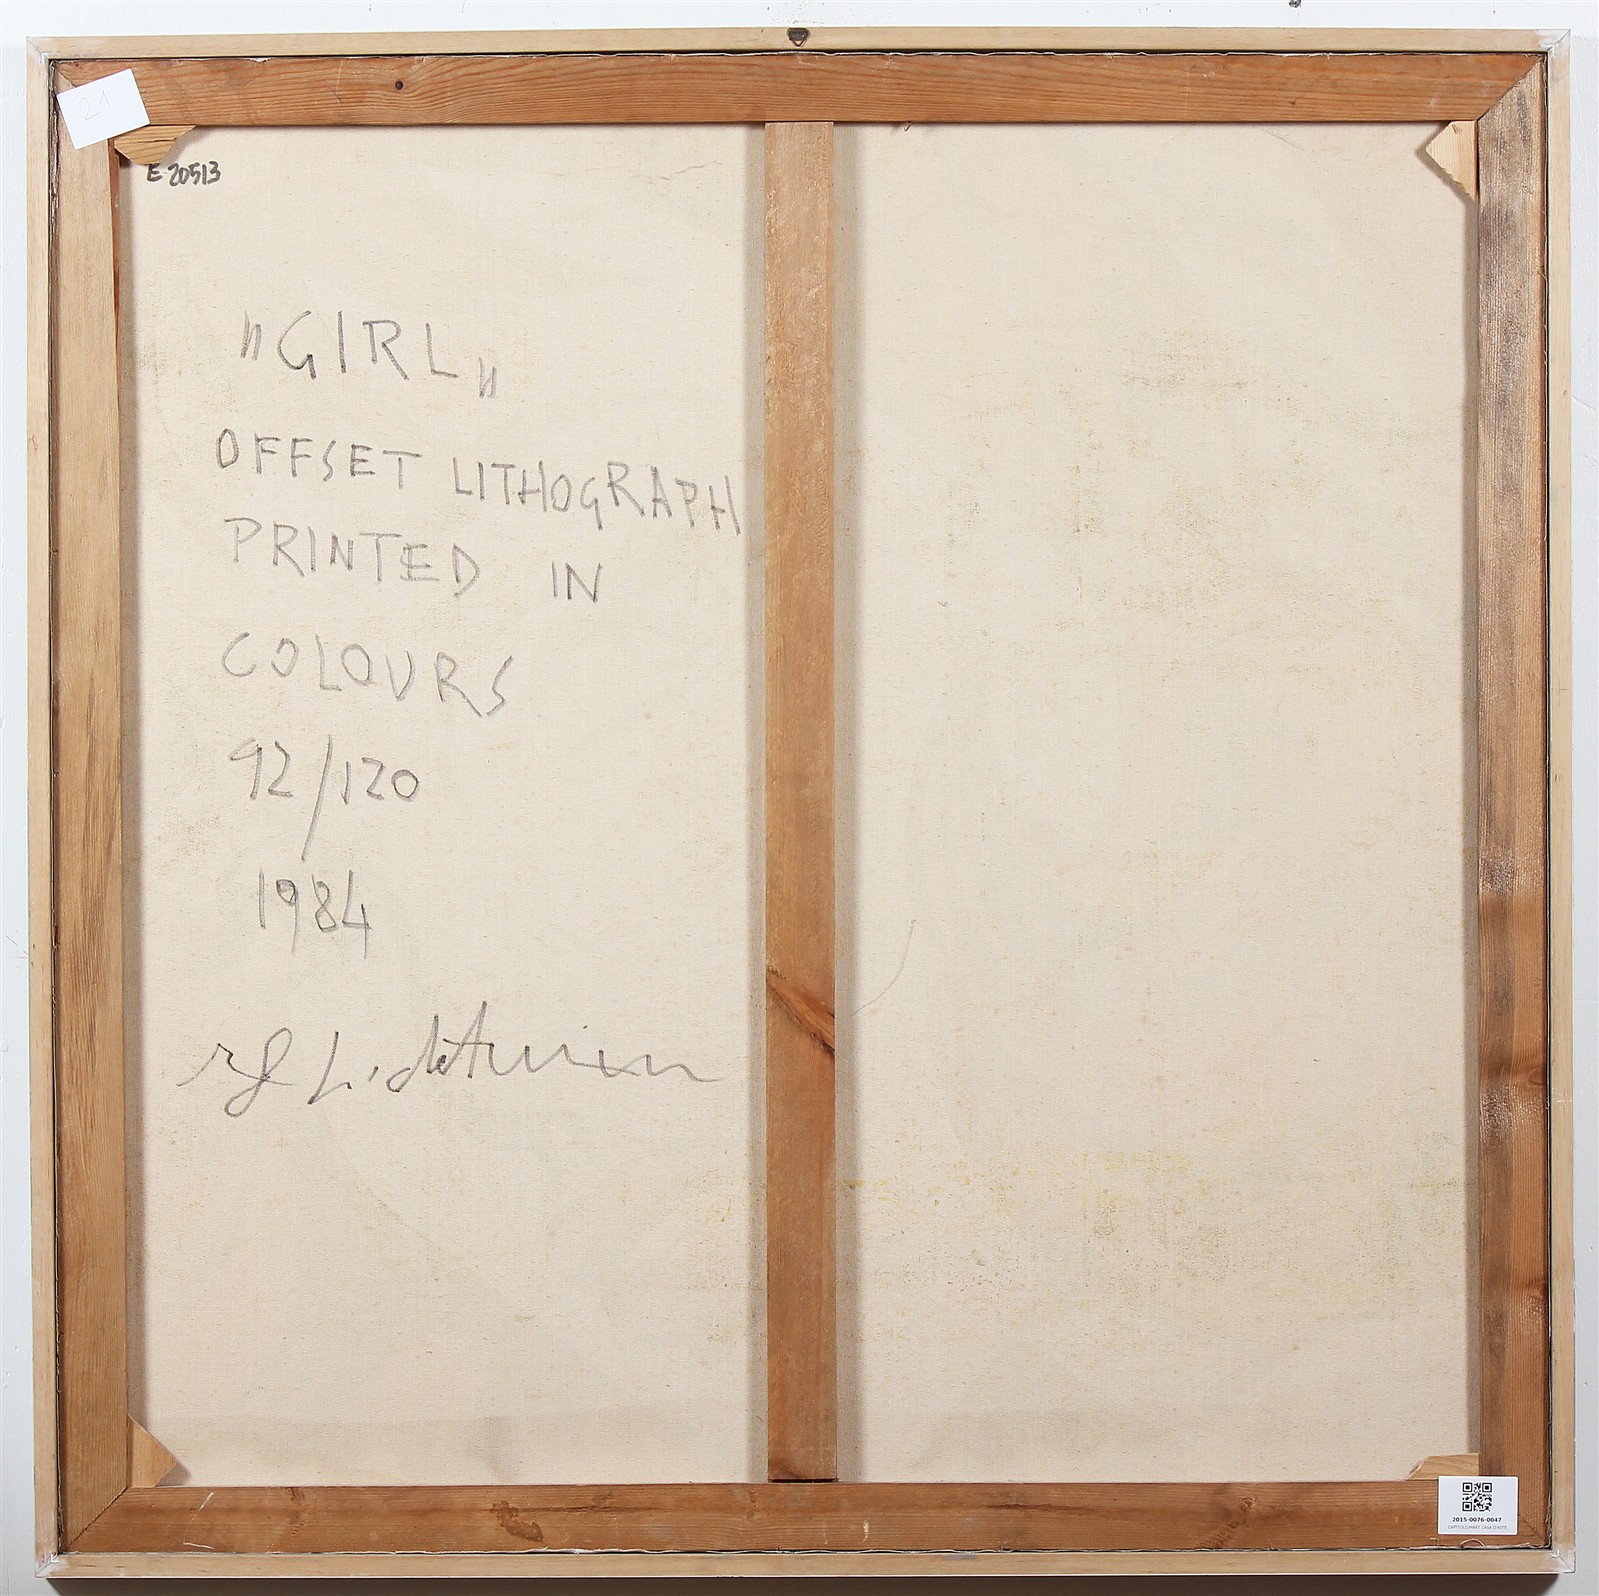 21
E 20513
"GIRL"
OFFSET LITHOGRAPH
PRINTED IN
COLOURS
92/120
1984
rf Lichtenstein
2015-0076-0047
CAPITOLIUMART CASA D'ASTE